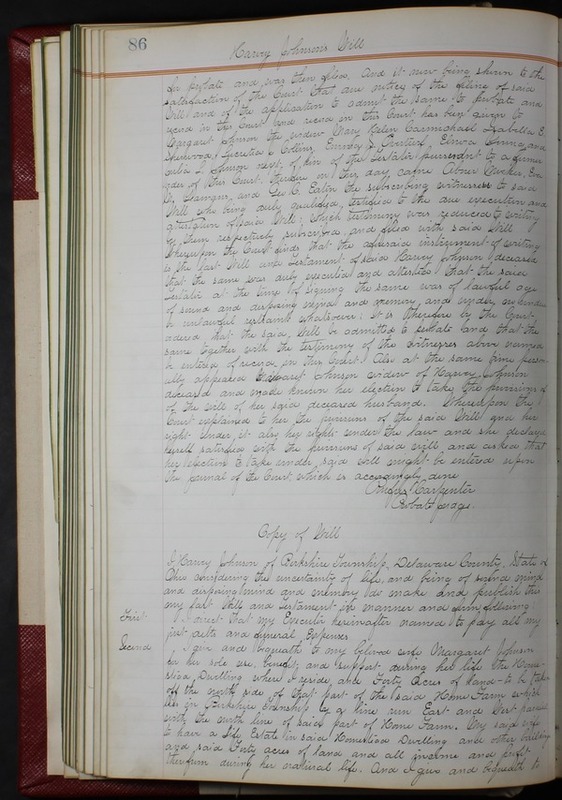 86
Harvey Johnson's Will
for probate and was then filed. And it now being shown to the
satisfaction of the Court that due notice of the filing of said
Will and of the application to admit the same to probate and
record in this Court and record in this Court has been given to
Margaret Johnson the widow Mary Helen Carmichael Isabella E.
Sherwood, Lucretia Collins, Emma J. Elmira and
Julia L. Johnson next of kin of the Testator pursuant to a former
order of this Court. Therefore on this day came Abner
and Geo. C. Eaton the subscribing witnesses to said
Will who being duly qualified, testified to the due execution and
attestation of said Will; which testimony was reduced to writing
by them respectively subscribed, and filed with said Will
Whereupon the Court finds that the aforesaid instrument of writing
is the last Will and Testament of said Harvey Johnson deceased
that the same was duly executed and attested That the said
Testator at the time of signing the same was of lawful age
of sound and disposing mind and memory, and under no undue
or unlawful restraint whatsoever: it is therefore by the Court,
ordered that the said Will be admitted to probate and that the
same together with the testimony of the Witnesses above named
be entered of record in this Court. Also at the same time person-
ally appeared Margaret Johnson widow of Harvey Johnson
deceased and made known her election to take the provisions of
of the will of her said deceased husband. Whereupon the
Court explained to her the provisions of the said Will and her
right under it also her rights under the law and she declared
herself satisfied with the provisions of said will and asked that
her election to take under said will might be entered upon
the journal of the Court which is accordingly done
Carpenter
Probate Judge.
Copy of Will
I Harvey Johnson of Berkshire Township, Delaware County, State of
Ohio considering the uncertainty of life, and being of sound mind
and disposing mind and memory do make and publish this
my last Will and Testament in manner and form following
First. I direct that my Executor hereinafter named to pay all my
just debts and funeral Expenses
Second I give and bequeath to my beloved wife Margaret Johnson
for her sole use, benefit and support during her life the Home-
stead Dwelling where I reside, also Forty Acres of land to be taken
off the north side of that part of the said Home Farm which
lies in Berkshire Township by a line run East and West parallel
with the north line of said part of Home Farm. My said wife
to have a Life Estate in said Homestead Dwelling and other buildings
and said Forty acres of land and all income and profit
therefrom during her natural life. And I give and bequeath to